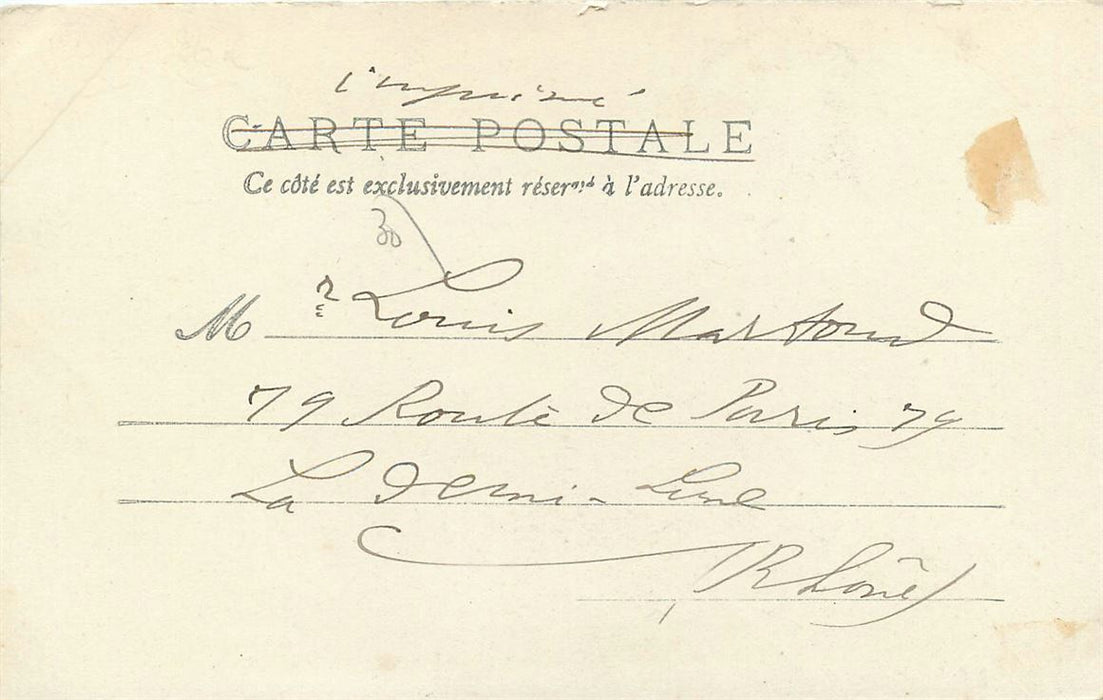 imprimé
CARTE POSTALE
Ce côté est exclusivement réservé à l'adresse.
30
M r Louis Martoud
79 Route de Paris 79
La Demi-Lune
(Rhône)